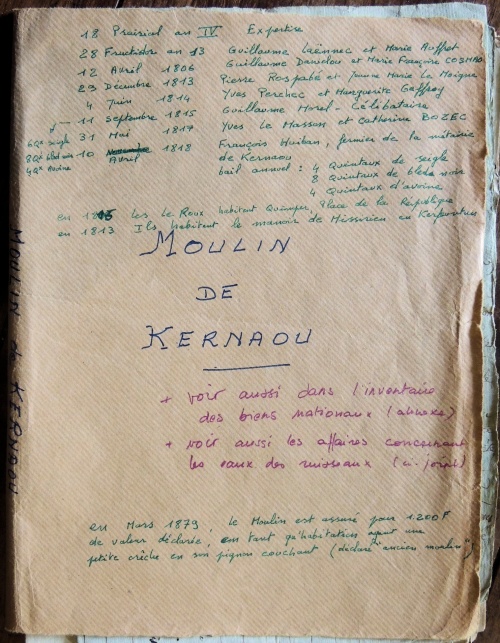 18 Prairial an IV Expertise
28 Fructidor an 13 Guillaume Laënnec et Marie Auffret
12 Avril 1806 Guillaume Danielou et Marie Françoise COSMAO
29 Décembre 1813 Pierre Rospabé et Jeanne Marie Le Moigne
4 Juin 1814 Yves Perchec et Marguerite Geffroy
11 Septembre 1815 Guillaume Morel - Célibataire
31 Mai 1817 Yves Le Masson et Catherine BOZEC
10 Avril 1818 François Huiban, fermier de la métairie
de Kernaou
bail annuel : 4 Quintaux de seigle
8 Quintaux de bled noir
4 Quintaux d'avoine
6Qx seigle
8Qx bled noir
4Qx Avoine
en 1815 les Le Roux habitent Quimper, Place de la République
en 1813 Ils habitent le manoir de Missirien en Kerfeunteun
MOULIN
DE
KERNAOU
+ voir aussi dans l'inventaire
des biens nationaux (annexe)
+ voir aussi les affaires concernant
les eaux des ruisseaux (ci-joint)
en Mars 1879, le Moulin est assuré pour 1.200F
de valeur déclarée, en tant qu'habitation ayant une
petite crèche en son pignon couchant (déclaré "ancien moulin")
MOULIN de KERNAOU